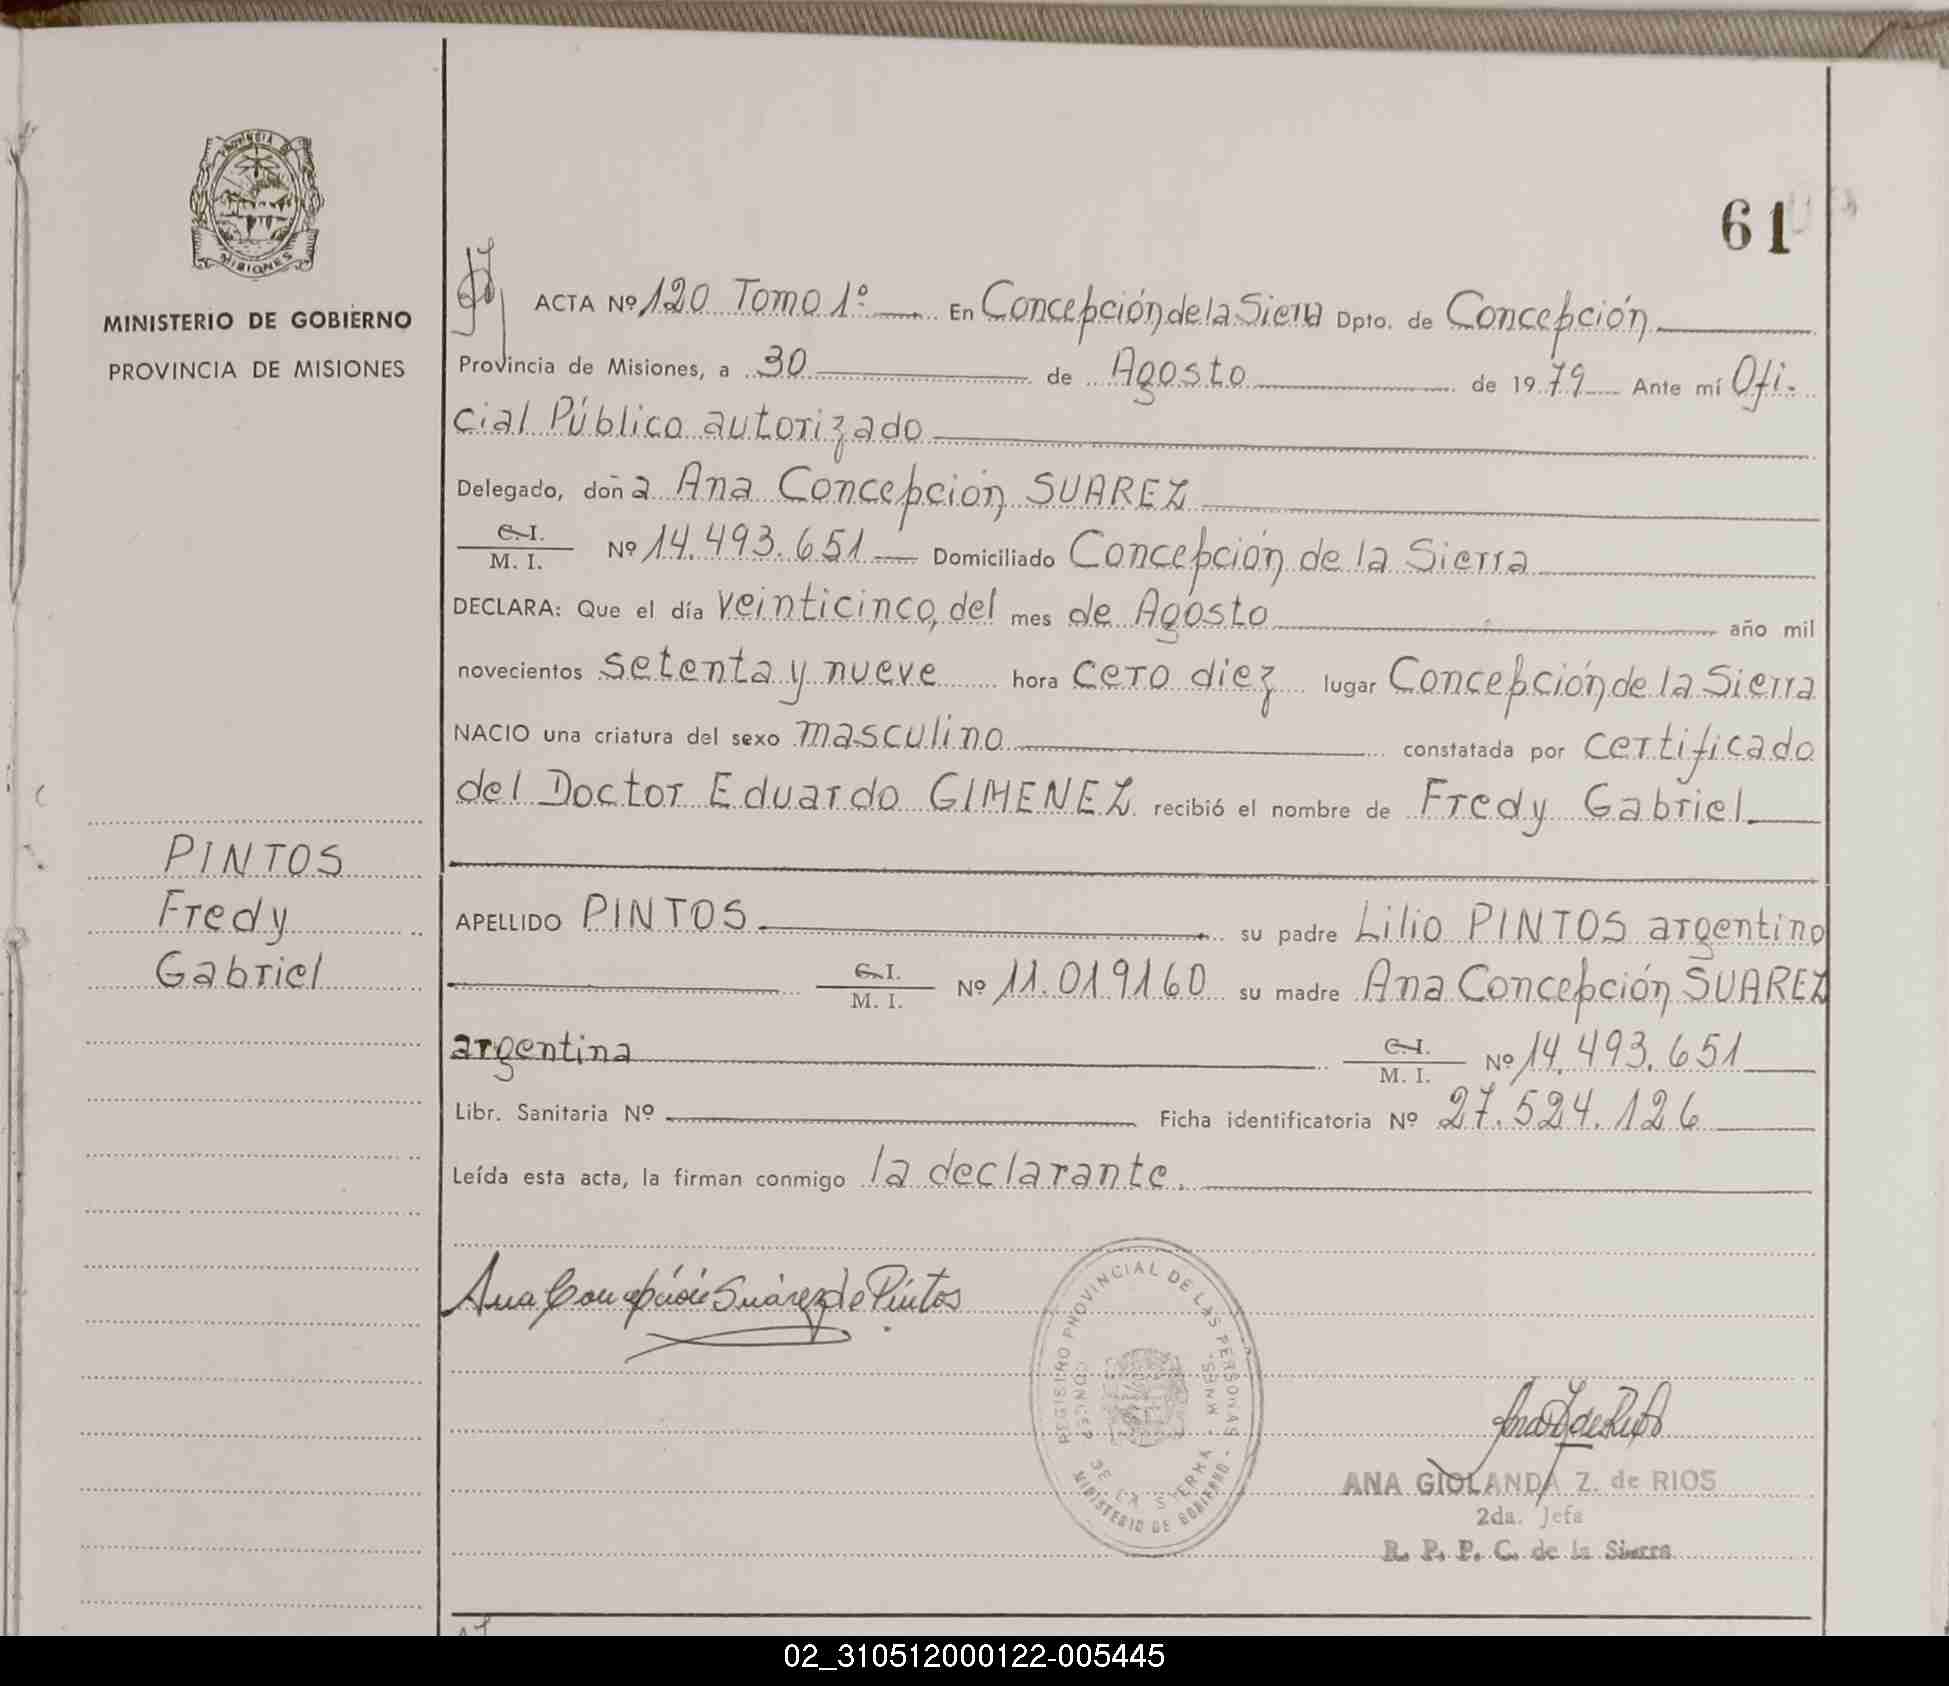 PROVINCIA DE
MISIONES
MINISTERIO DE GOBIERNO
PROVINCIA DE MISIONES
61
ACTA Nº 120 Tomo 1º En Concepción de la Sierra Dpto. de Concepción
Provincia de Misiones, a 30 de Agosto de 1979 Ante mí Ofi-
cial Público autorizado
Delegado, doña Ana Concepción SUAREZ
C.I.
M. I. Nº 14.493.651 Domiciliado Concepción de la Sierra
DECLARA: Que el día veinticinco, del mes de Agosto año mil
novecientos setenta y nueve hora cero diez lugar Concepción de la Sierra
NACIO una criatura del sexo masculino constatada por certificado
del Doctor Eduardo GIMENEZ recibió el nombre de Fredy Gabriel.
PINTOS
Fredy
Gabriel
APELLIDO PINTOS su padre Lilio PINTOS argentino
C.I.
M. I. Nº 11.019160 su madre Ana Concepción SUAREZ
argentina C.I.
M. I. Nº 14.493.651
Libr. Sanitaria Nº Ficha identificatoria Nº 27.524.126
Leída esta acta, la firman conmigo la declarante.
Ana Concepción Suárez de Pintos
REGISTRO PROVINCIAL DE LAS PERSONAS
CONCEP. DE LA SIERRA - MNES.
MINISTERIO DE GOBIERNO
ANA GIOLANDA Z. de RIOS
2da. Jefa
R. P. P. C. de la Sierra
02_310512000122-005445